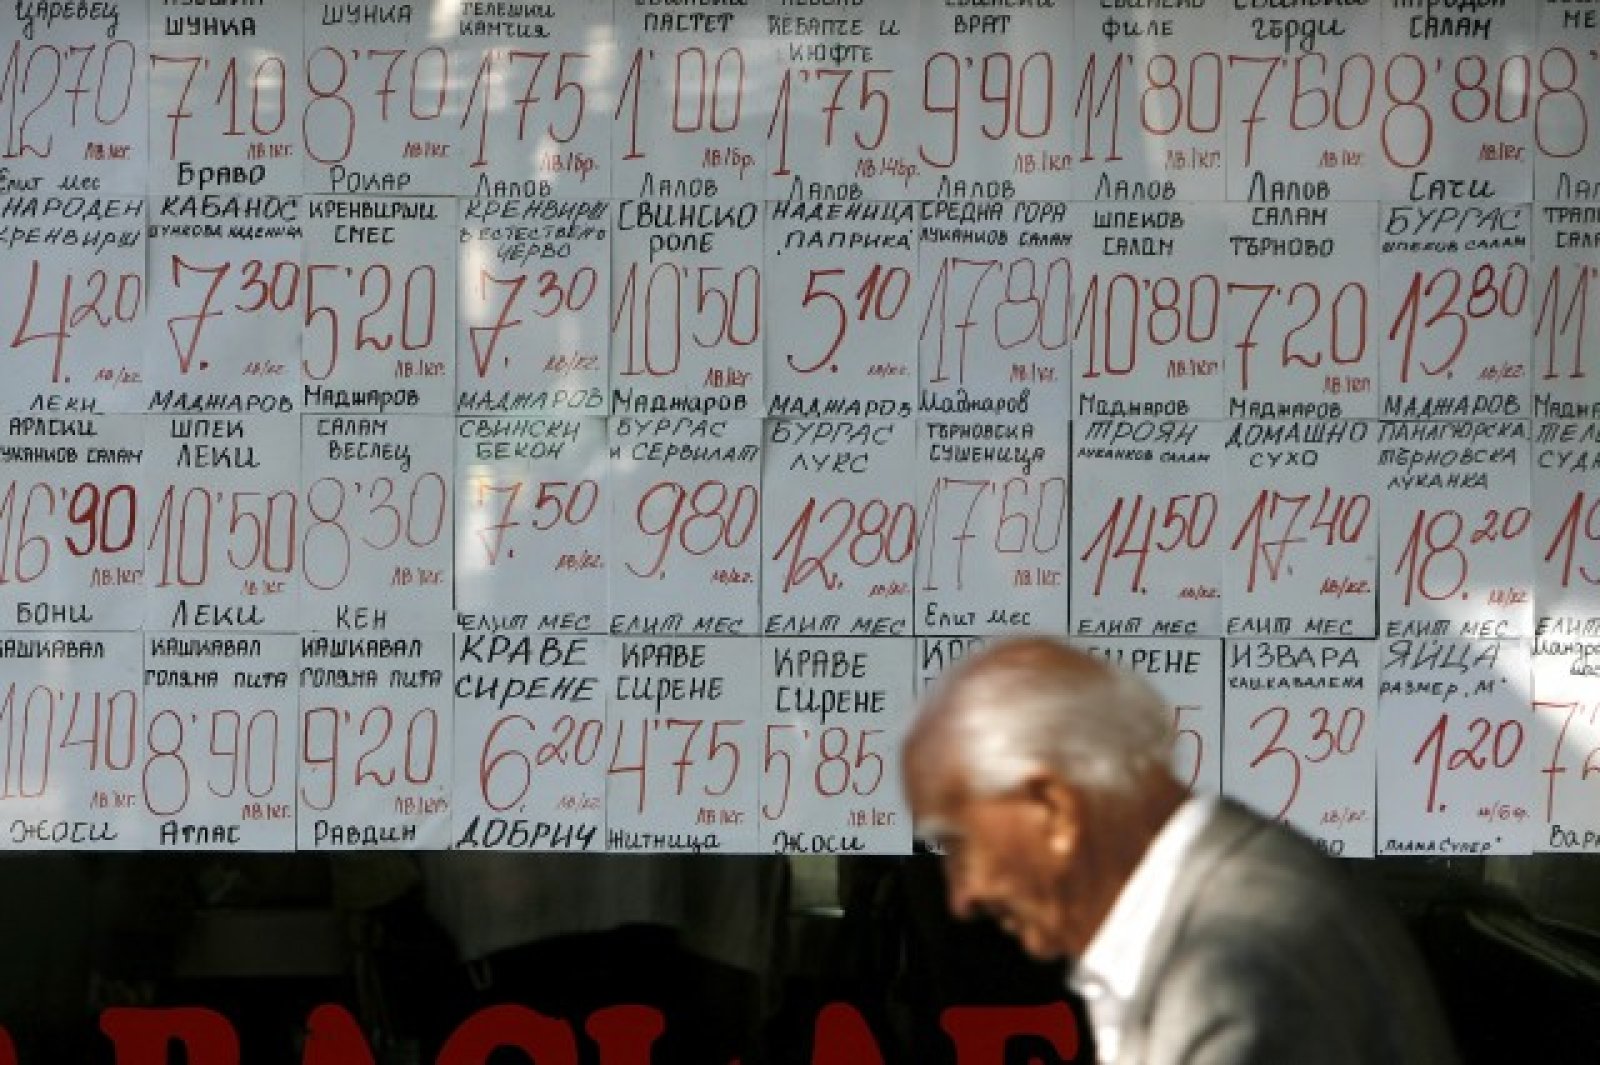 ЦАРЕВЕЦ
12'70
ЛВ/КГ.
Елит мес
ШУНКА
7'10
ЛВ/КГ.
БРАВО
ШУНКА
8'70
ЛВ/КГ.
РОКАР
ТЕЛЕШКИ
КАМЧИЯ
1'75
ЛВ/бр.
ЛАЛОВ
ПАСТЕТ
1'00
ЛВ/бр.
ЛАЛОВ
КЕБАПЧЕ И
КЮФТЕ
1'75
ЛВ/4бр.
ЛАЛОВ
ВРАТ
9'90
ЛВ/КГ.
ЛАЛОВ
СВИНСКО
ФИЛЕ
11'80
ЛВ/КГ.
ЛАЛОВ
гърди
7'60
ЛВ/КГ.
ЛАЛОВ
САЛАМ
8'80
ЛВ/КГ.
САЧИ
8'
НАРОДЕН
КРЕНВИРШ
4.20
лв/кг.
ЛЕКИ
КАБАНОС
7.30
лв/кг.
МАДЖАРОВ
КРЕНВИРШИ
СМЕС
5'20
ЛВ/КГ.
МАДЖАРОВ
КРЕНВИРШ
В ЕСТЕСТВЕНО
ЧЕРВО
7.30
лв/кг.
МАДЖАРОВ
СВИНСКО
РОЛЕ
10'50
ЛВ/КГ.
МАДЖАРОВ
НАДЕНИЦА
"ПАПРИКА"
5.10
лв/кг.
МАДЖАРОВ
СРЕДНА ГОРА
ЛУКАНКОВ САЛАМ
17'80
ЛВ/КГ.
МАДЖАРОВ
ШПЕКОВ
САЛАМ
10'80
ЛВ/КГ.
МАДЖАРОВ
САЛАМ
ТЪРНОВО
7'20
ЛВ/КГ.
МАДЖАРОВ
БУРГАС
ШПЕКОВ САЛАМ
13.80
лв/кг.
МАДЖАРОВ
11'
АРЛСКИ
ЛУКАНКОВ САЛАМ
16'90
ЛВ/КГ.
БОНИ
ШПЕК
ЛЕКИ
10'50
ЛВ/КГ.
ЛЕКИ
САЛАМ
ВЕСЛЕЦ
8'30
ЛВ/КГ.
КЕН
СВИНСКИ
БЕКОН
7.50
лв/кг.
ЕЛИТ МЕС
БУРГАС
И СЕРВИЛАТ
9.80
лв/кг.
ЕЛИТ МЕС
БУРГАС
ЛУКС
12.80
лв/кг.
ЕЛИТ МЕС
ТЪРНОВСКА
СУШЕНИЦА
17'60
ЛВ/КГ.
Елит мес
ТРОЯН
ЛУКАНКОВ САЛАМ
14.50
лв/кг.
ЕЛИТ МЕС
ДОМАШНО
СУХО
17.40
лв/кг.
ЕЛИТ МЕС
ПАНАГЮРСКА
ТЪРНОВСКА
ЛУКАНКА
18.20
лв/кг.
ЕЛИТ МЕС
КАШКАВАЛ
10'40
ЛВ/КГ.
ЖОСИ
КАШКАВАЛ
ГОЛЯМА ПИТА
8'90
ЛВ/КГ.
АТЛАС
КАШКАВАЛ
ГОЛЯМА ПИТА
9'20
ЛВ/КГ.
РАВДИН
КРАВЕ
СИРЕНЕ
6.20
лв/кг.
ДОБРИЧ
КРАВЕ
СИРЕНЕ
4'75
ЛВ/КГ.
Житница
КРАВЕ
СИРЕНЕ
5'85
ЛВ/КГ.
ЖОСИ
ИЗВАРА
КАШКАВАЛЕНА
3.30
лв/кг.
ЯЙЦА
РАЗМЕР "М"
1.20
"ПЛАМА СУПЕР"